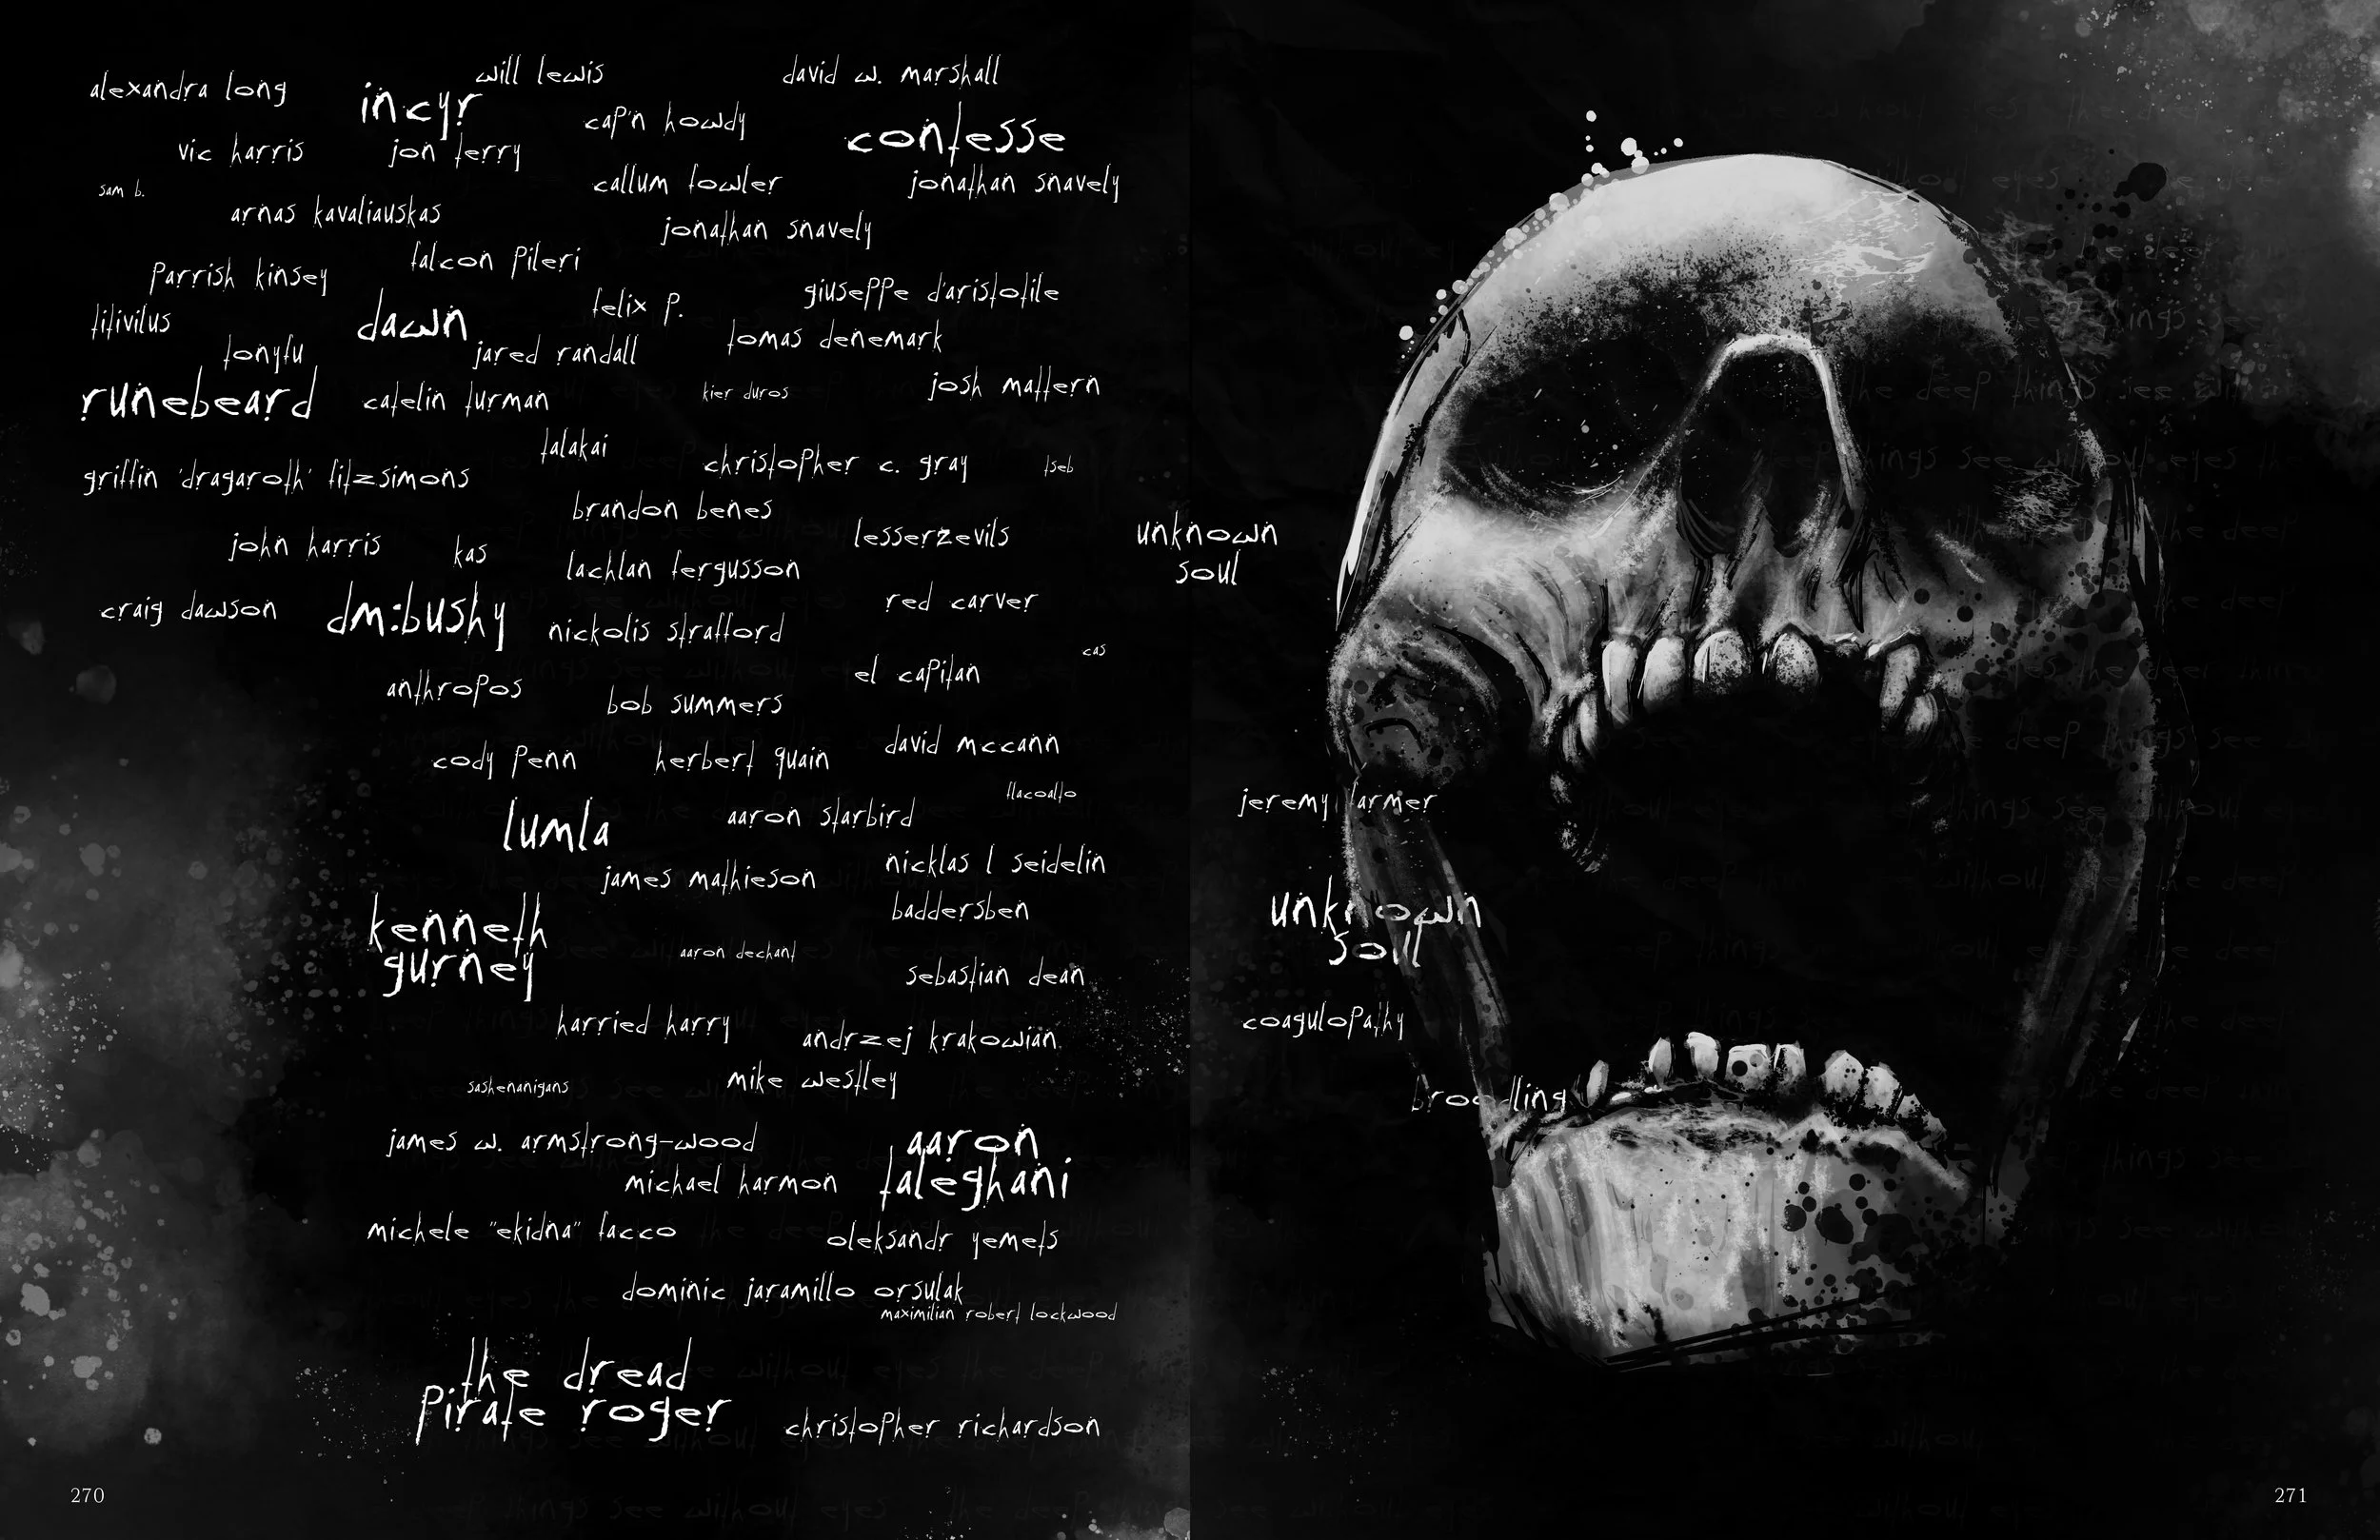 will lewis
david w. marshall
alexandra long
incyr
cap'n howdy
contesse
vic harris
jon terry
sam b.
callum fowler
jonathan snavely
arnas kavaliauskas
jonathan snavely
falcon pileri
parrish kinsey
felix p.
giuseppe d'aristotile
titivilus
dawn
tonyfu
jared randall
tomas denemark
runebeard
catelin furman
kier duros
josh mattern
talakai
griffin 'dragaroth' fitzsimons
christopher c. gray
tseb
brandon benes
john harris
kas
lesserzevils
unknown
soul
lachlan fergusson
craig dawson
dm:bushy
nickolis strafford
red carver
cas
anthropos
bob summers
el capitan
cody penn
herbert quain
david mccann
tlacoatto
lumla
aaron starbird
jeremy farmer
james mathieson
nicklas l seidelin
kenneth
gurney
baddersben
unknown
soul
aaron dechant
sebastian dean
harried harry
andrzej krakowian
coagulopathy
sashenanigans
mike westley
broodling
james w. armstrong-wood
aaron
taleghani
michael harmon
michele "ekidna" facco
oleksandr yemets
dominic jaramillo orsulak
maximilian robert lockwood
the dread
pirate roger
christopher richardson
270
271
the deep things see without eyes